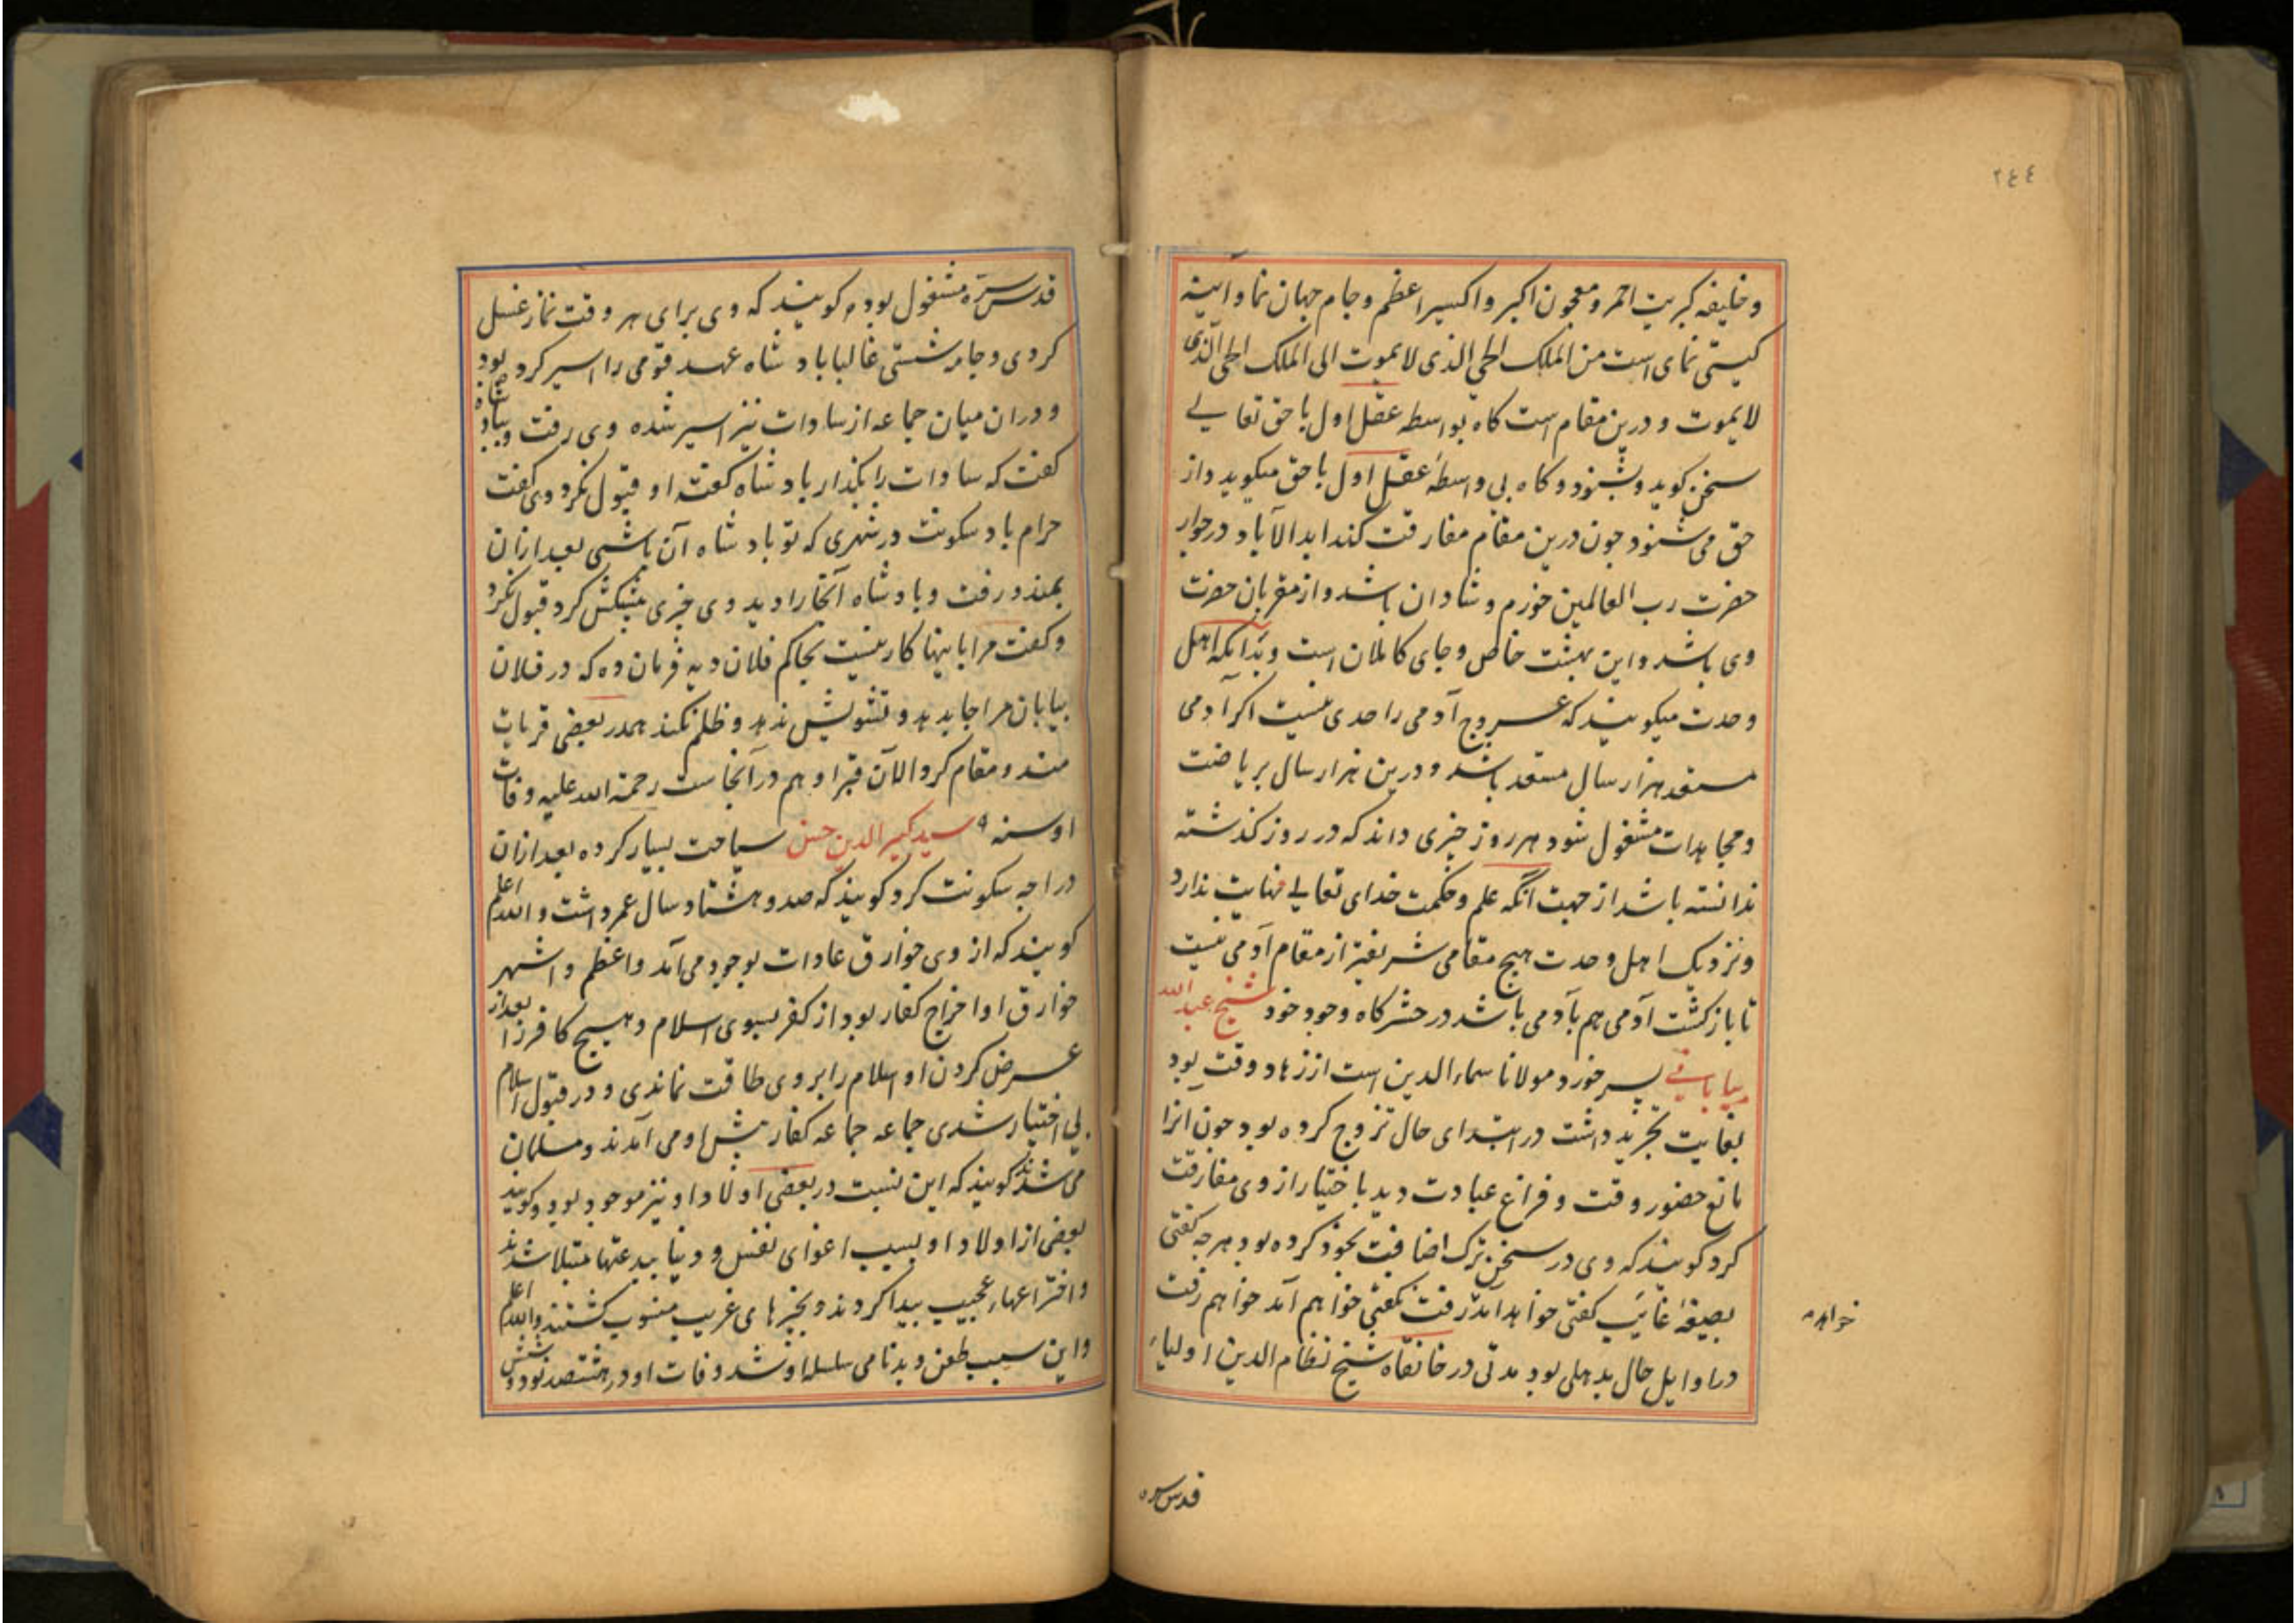 ٢٤٤
و خلیفه کبریت احمر و معجون اکبر و اکسیر اعظم و جام جهان نما و آیینه
کیتی نمای است من الملک الحی الذی لا یموت الی الملک الحی الذی
لا یموت و درین مقام است کاه بواسطه عقل اول با حق تعالی
سخن کوید و بشنود و کاه بی واسطهٔ عقل اول با حق میکوید و از
حق می شنود جون درین مقام مفارقت کند ابد الآباد در جوار
حضرت رب العالمین خورم و شادان باشد و از مقربان حضرت
وی باشد و این بهشت خاص و جای کاملان است و بدانکه اهل
وحدت میکویند که عروج آدمی را حدی نیست اکر آدمی
مستعد هزار سال مستعد باشد و درین هزار سال بریاضت
و مجاهدات مشغول شود هر روز چیزی داند که در روز کذشته
ندانسته باشد از جهت آنکه علم و حکمت خدای تعالی نهایت ندارد
و نزدیک اهل وحدت هیج مقامی شریفتر از مقام آدمی نیست
تا بازکشت آدمی هم بآدمی باشد در حشرکاه وجود خود شیخ عبد الله
بیابانی پسر خورد مولانا سماء الدین است از زهاد وقت بود
بغایت تجرید داشت در ابتدای حال تزوج کرده بود جون انرا
مانع حضور وقت و فراغ عبادت دید باختیار از وی مفارقت
کرد کویند که وی در سخن ترک اضافت بخود کرده بود هر جه کفتی
بصیغهٔ غائب کفتی خواهد آمد رفت نکفتی خواهم آمد خواهم رفت
خواهد
در اوایل حال بدهلی بود مدتی در خانقاه شیخ نظام الدین اولیاء
قدس سره
قدس سره مشغول بوده کویند که وی برای هر وقت نماز غسل
کردی و جامه شستی غالبا بادشاه عهد قومی را اسیر کرد بود
و دران میان جماعه از سادات نیز اسیر شده وی رفت و بباد شاه
کفت که سادات را بکذار بادشاه کفتهٔ او قبول نکرد وی کفت
حرام باد سکونت در شهری که تو بادشاه آن باشی بعد ازان
بمندو رفت و بادشاه آنجا را دید وی چیزی پیشکش کرد قبول نکرد
و کفت مرا باینها کار نیست بحاکم فلان دیه فرمان ده که در فلان
بیابان مرا جا بدهد و تشویش ندهد و ظلم نکند همدر بعضی قریات
مندو مقام کرد الآن قبر او هم در آنجا ست رحمة الله علیه وفات
او سنه ٩ سید کبیر الدین حسن سیاحت بسیار کرده بعد ازان
در اجه سکونت کرد کویند که صد و هشتاد سال عمر داشت و الله اعلم
کویند که از وی خوارق عادات بوجود می آمد و اعظم و اشهر
خوارق او اخراج کفار بود از کفر بسوی اسلام و هیج کافر را بعد از
عرض کردن او اسلام را بر وی طاقت نماندی و در قبول اسلام
بی اختیار شدی جماعه جماعه کفار پیش او می آمدند و مسلمان
می شدند کویند که این نسبت در بعضی اولاد او نیز موجود بود و کویند
بعضی از اولاد او بسبب اغوای نفس و دنیا ببدعتها مبتلا شدند
و اختراعهاء عجیب پیدا کردند و بچیزهای غریب منسوب کشتند و الله اعلم
و این سبب طعن و بدنامی سلسله او شد وفات او در هشتصد نود و شش